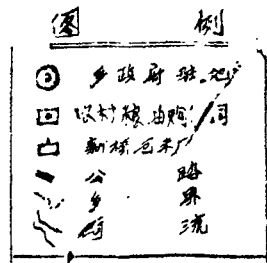 图 例
乡政府驻地
农村粮油购
新桥仓米厂
公 路
乡 界
河 流